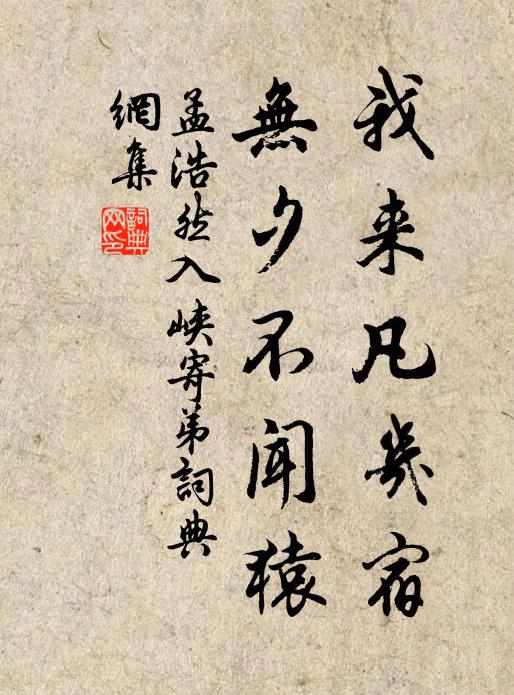 我来凡幾宿
無夕不聞猿
孟浩然入峽寄弟詞典
網集
詞典
网印